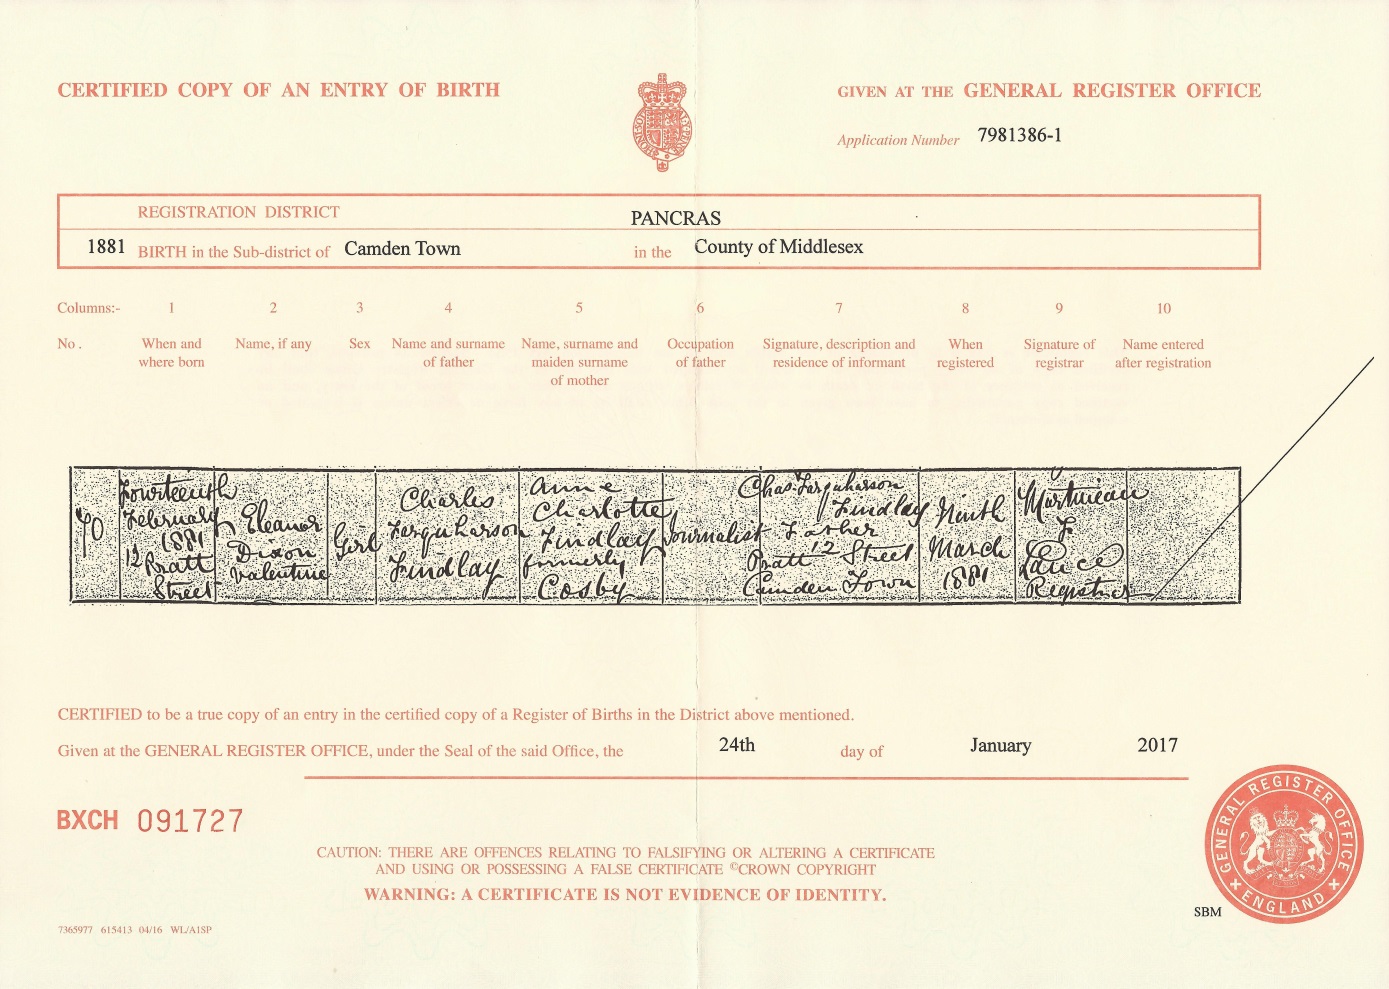 CERTIFIED COPY OF AN ENTRY OF BIRTH
GIVEN AT THE GENERAL REGISTER OFFICE
Application Number 7981386-1
REGISTRATION DISTRICT PANCRAS
1881 BIRTH in the Sub-district of Camden Town in the County of Middlesex
Columns:- 1 2 3 4 5 6 7 8 9 10
No. When and where born
Name, if any
Sex
Name and surname of father
Name, surname and maiden surname of mother
Occupation of father
Signature, description and residence of informant
When registered
Signature of registrar
Name entered after registration
Fourteenth
February
1881
12 Pratt
Street
Eleanor
Dixon
Valentine
Girl
Charles
Farquharson
Findlay
Anne
Charlotte
Findlay
formerly
Cosby
Journalist
Chas. Farquharson
Findlay
Father
12
Pratt Street
Camden Town
Ninth
March
1881
Martineau
F
Registrar
CERTIFIED to be a true copy of an entry in the certified copy of a Register of Births in the District above mentioned.
Given at the GENERAL REGISTER OFFICE, under the Seal of the said Office, the 24th day of January 2017
BXCH 091727
CAUTION: THERE ARE OFFENCES RELATING TO FALSIFYING OR ALTERING A CERTIFICATE
AND USING OR POSSESSING A FALSE CERTIFICATE ©CROWN COPYRIGHT
WARNING: A CERTIFICATE IS NOT EVIDENCE OF IDENTITY.
GENERAL REGISTER OFFICE
ENGLAND
SBM
7365977 615413 04/16 WL/A1SP